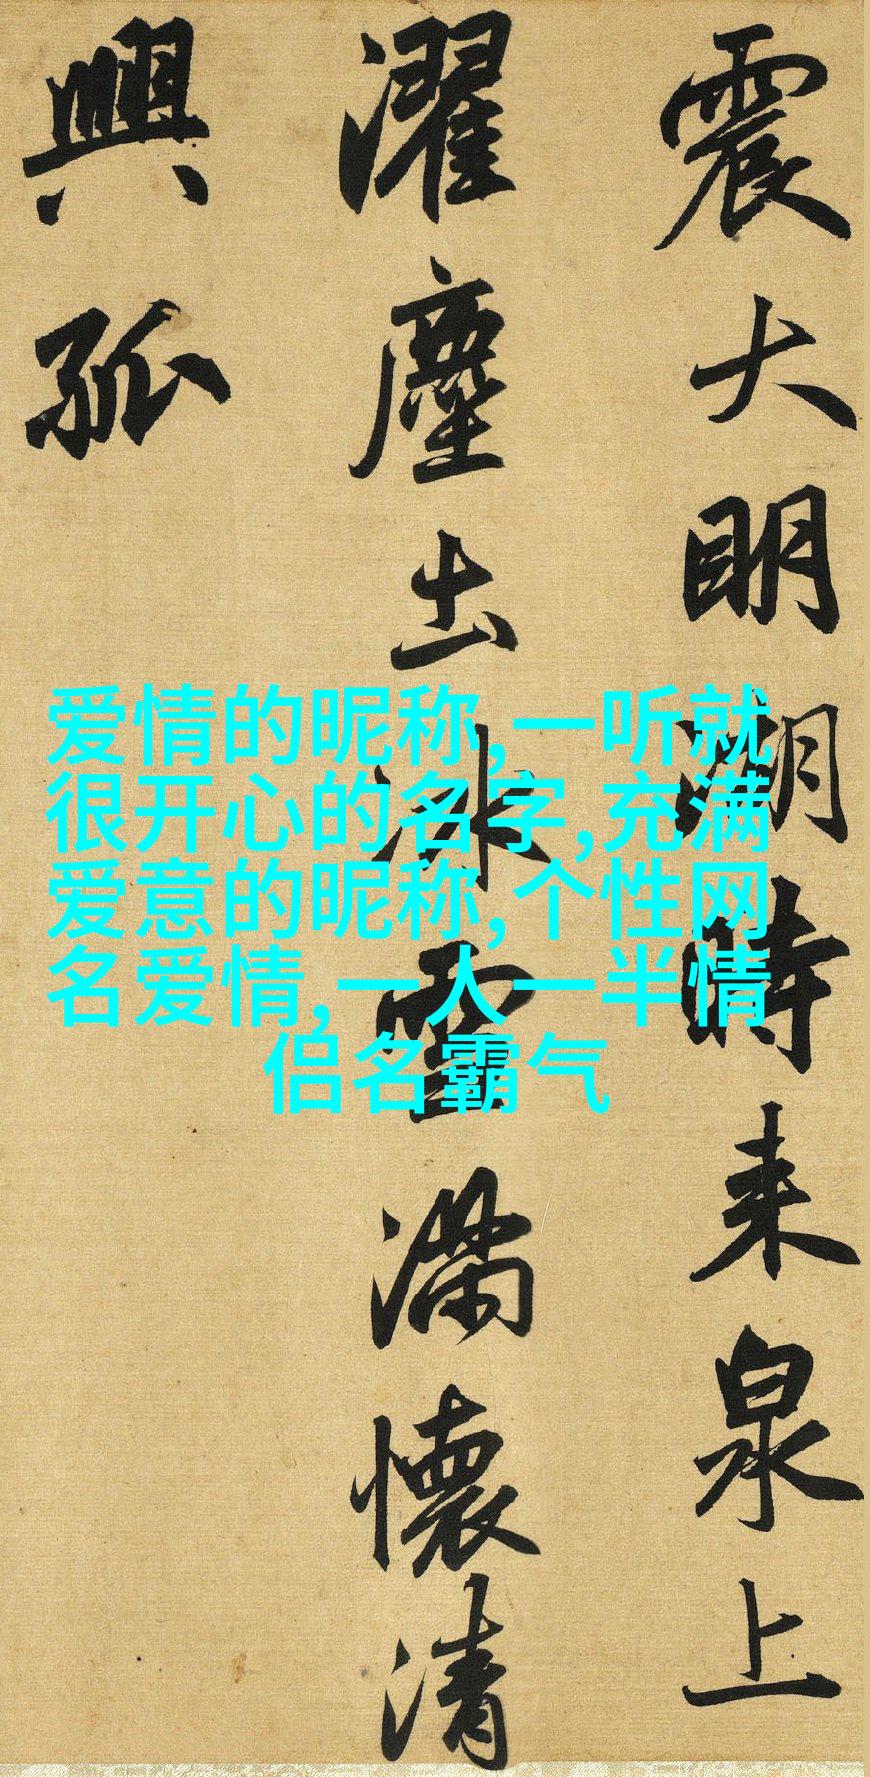 震大明湖時来泉上
濯塵出冰雪满懷清
興孤
爱情的昵称,一听就
很开心的名字,充满
爱意的昵称,个性网
名爱情,一人一半情
侣名霸气